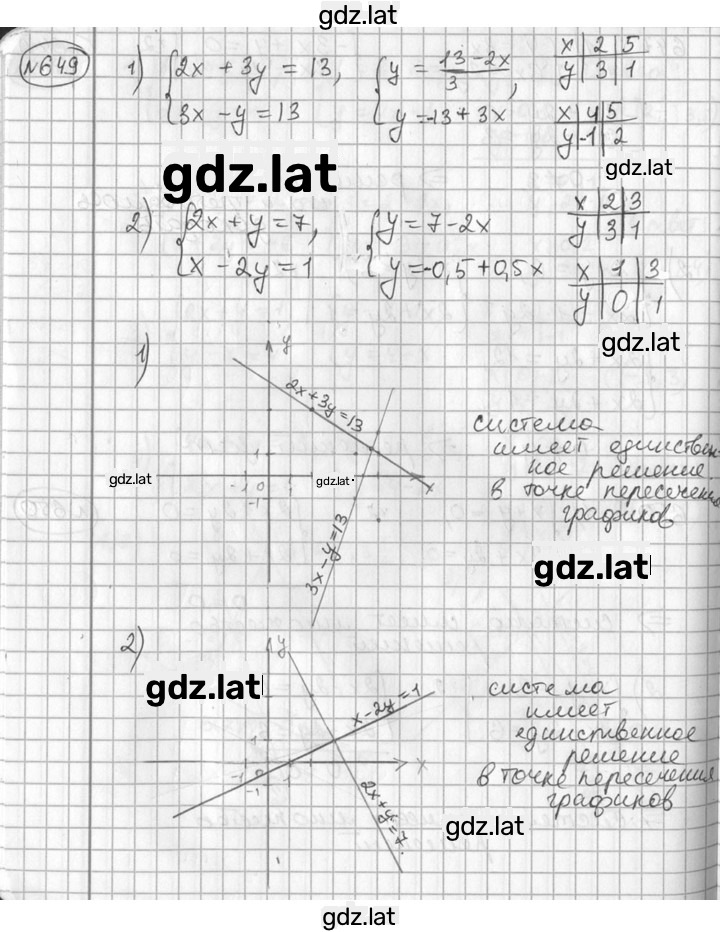 gdz.lat
№649 1) {2x + 3y = 13, {y = (13-2x)/3, x | 2 | 5
y | 3 | 1
3x - y = 13 y = -13 + 3x x | 4 | 5
y | -1 | 2
gdz.lat gdz.lat
2) {2x + y = 7, {y = 7 - 2x x | 2 | 3
y | 3 | 1
x - 2y = 1 y = -0,5 + 0,5x x | 1 | 3
y | 0 | 1
gdz.lat
1) y
2x + 3y = 13
система
имеет единствен-
1
ное решение
gdz.lat -1 0 gdz.lat x
в точке пересечения
-1
графиков
3x - y = 13
gdz.lat
2) y
gdz.lat x - 2y = 1
система
имеет
единственное
1
решение
-1 0 x
в точке пересечения
-1
графиков
2x + y = 7
gdz.lat
gdz.lat